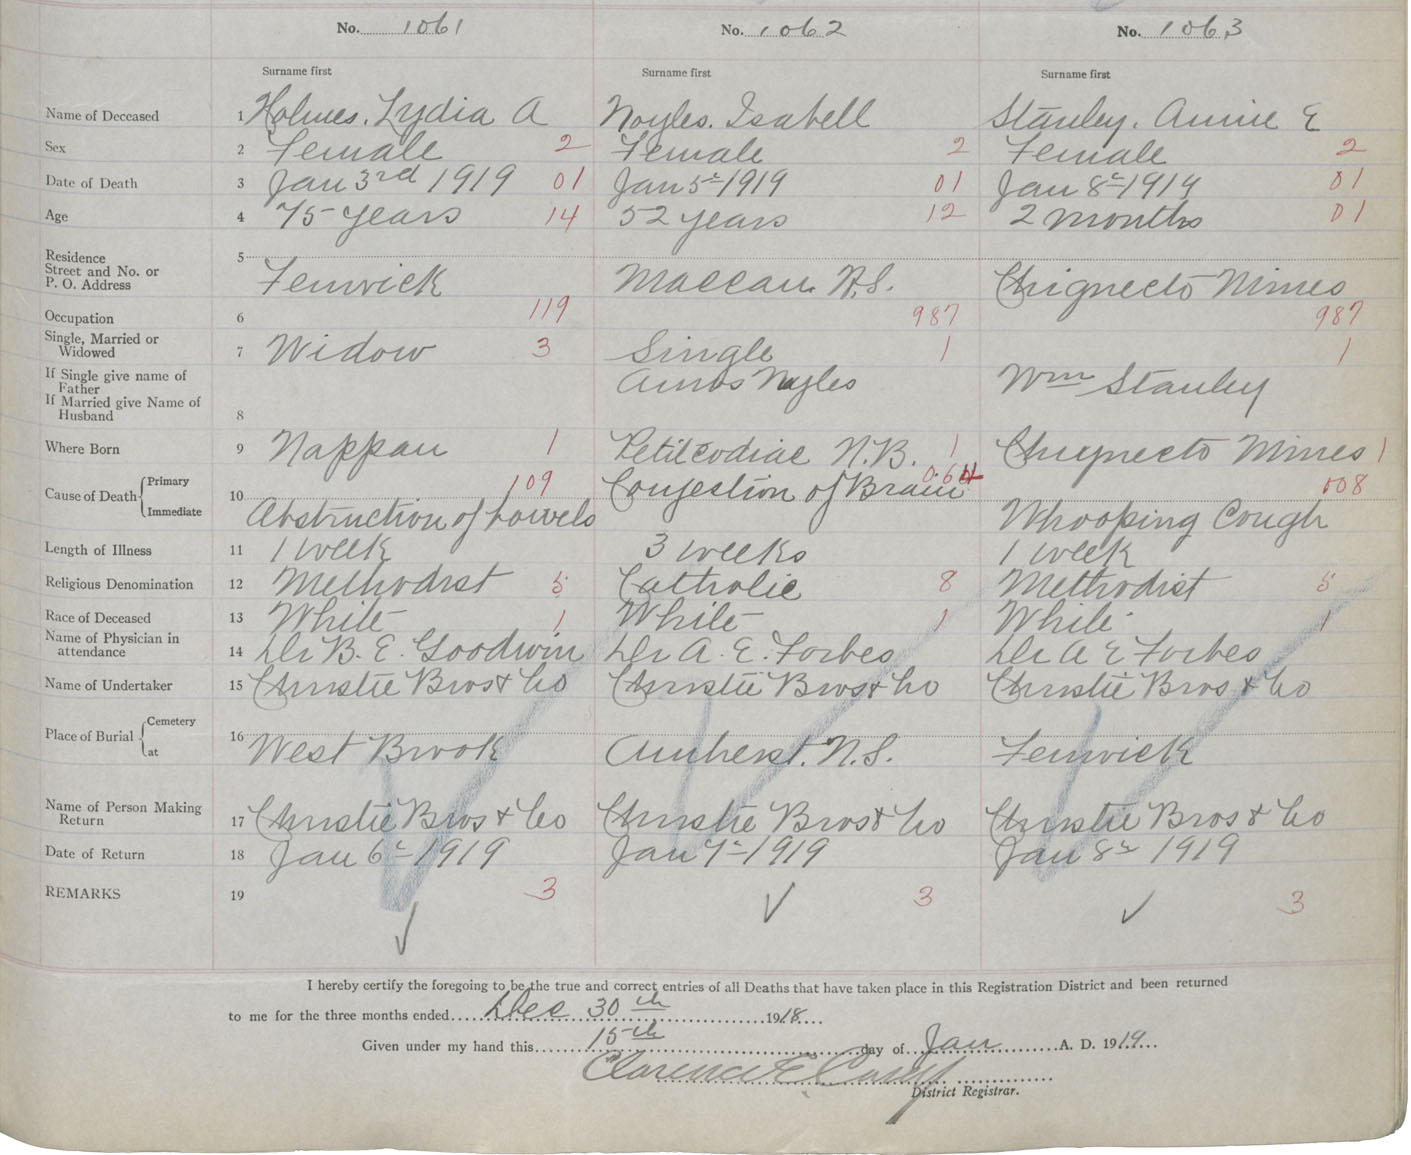 No. 1061 No. 1062 No. 1063
Surname first Surname first Surname first
Name of Deceased 1 Holmes. Lydia A Noyles. Isabell Stanley. Annie E
Sex 2 Female 2 Female 2 Female 2
Date of Death 3 Jan 3rd 1919 01 Jan 5th 1919 01 Jan 8th 1919 01
Age 4 75 years 14 52 years 12 2 months 01
Residence 5
Street and No. or
P. O. Address Fenwick Maccan N.S. Chignecto Mines
Occupation 6 119 987 987
Single, Married or
Widowed 7 Widow 3 Single 1 1
If Single give name of
Father Amos Noyles Wm Stanley
If Married give Name of
Husband 8
Where Born 9 Nappan 1 Petitcodiac N.B. 1 Chignecto Mines 1
Cause of Death Primary 10 109 Congestion of Brain 064 008
Immediate Abstruction of bowels Whooping Cough
Length of Illness 11 1 week 3 weeks 1 week
Religious Denomination 12 Methodist 5 Catholic 8 Methodist 5
Race of Deceased 13 White 1 White 1 White 1
Name of Physician in
attendance 14 Dr B. E. Goodwin Dr A. E. Forbes Dr A E Forbes
Name of Undertaker 15 Christie Bros & Co Christie Bros & Co Christie Bros & Co
Place of Burial Cemetery 16
at West Brook Amherst. N.S. Fenwick
Name of Person Making
Return 17 Christie Bros & Co Christie Bros & Co Christie Bros & Co
Date of Return 18 Jan 6th 1919 Jan 7th 1919 Jan 8th 1919
REMARKS 19 3 3 3
I hereby certify the foregoing to be the true and correct entries of all Deaths that have taken place in this Registration District and been returned
to me for the three months ended Dec 30th 1918
Given under my hand this 15th day of Jan A. D. 1919
Clarence E Casey
District Registrar.